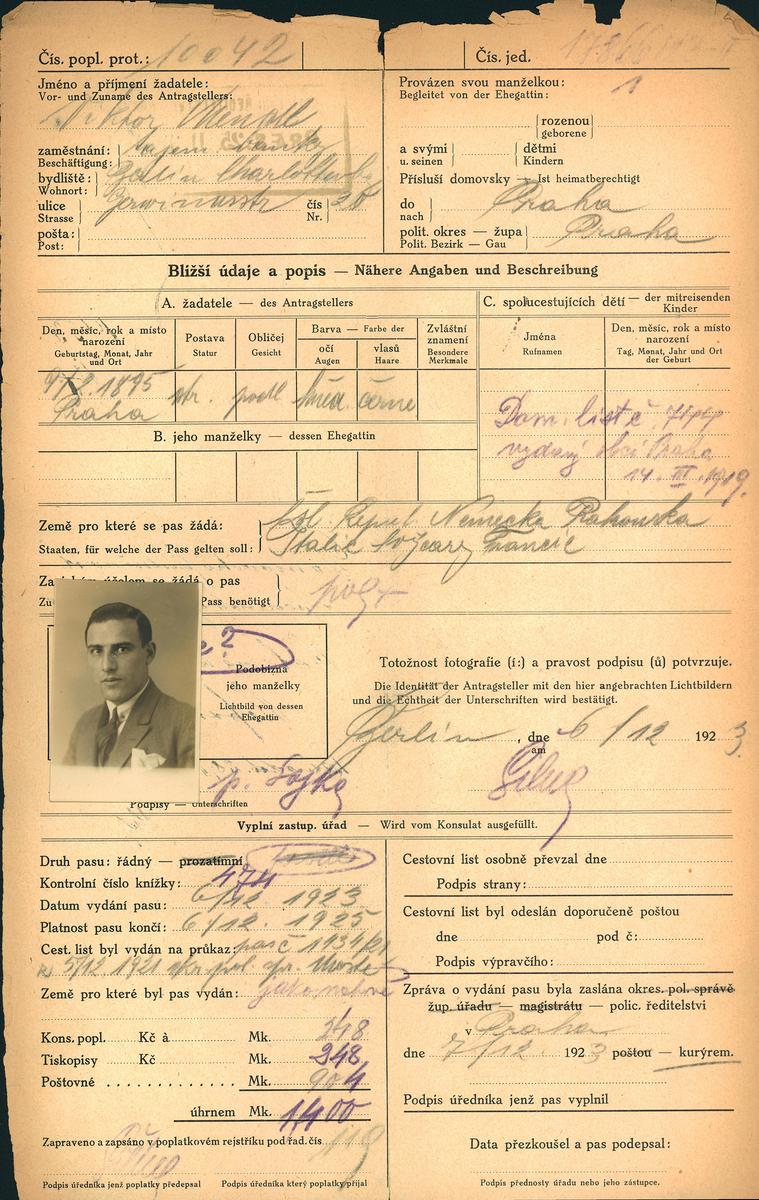 Čís. popl. prot.: 10042
Čís. jed.
Jméno a příjmení žadatele:
Vor- und Zuname des Antragstellers:
Viktor
zaměstnání:
Beschäftigung:
tajem. banky
bydliště:
Wohnort:
Berlin Charlottenbg
ulice
Strasse
Gervinusstr
čís
Nr. 20
pošta:
Post:
Provázen svou manželkou:
Begleitet von der Ehegattin:
1
rozenou
geborene
a svými
u. seinen
dětmi
Kindern
Přísluší domovsky — Ist heimatberechtigt
do
nach
Praha
polit. okres — župa
Polit. Bezirk — Gau
Praha
Bližší údaje a popis — Nähere Angaben und Beschreibung
A. žadatele — des Antragstellers
Den, měsíc, rok a místo narození
Geburtstag, Monat, Jahr und Ort
Postava
Statur
Obličej
Gesicht
Barva — Farbe der
očí
Augen
vlasů
Haare
Zvláštní znamení
Besondere Merkmale
1895
Praha
str. podl. hněd. černé
B. jeho manželky — dessen Ehegattin
C. spolucestujících dětí — der mitreisenden Kinder
Jména
Rufnamen
Den, měsíc, rok a místo narození
Tag, Monat, Jahr und Ort der Geburt
Dom. list č.
vydaný obcí Praha
14. III. 1919.
Země pro které se pas žádá:
Staaten, für welche der Pass gelten soll:
Čsl. Republ. Německa Rakouska
Italie Švýcary Francie
se žádá o pas
Pass benötigt
Podobizna
jeho manželky
Lichtbild von dessen
Ehegattin
Totožnost fotografie (í:) a pravost podpisu (ů) potvrzuje.
Die Identität der Antragsteller mit den hier angebrachten Lichtbildern
und die Echtheit der Unterschriften wird bestätigt.
Berlin, dne
am 6/12 1923
Podpisy — Unterschriften
Vyplní zastup. úřad — Wird vom Konsulat ausgefüllt.
Druh pasu: řádný — prozatímní
Kontrolní číslo knížky: 474
Datum vydání pasu: 6/12 1923
Platnost pasu končí: 6/12. 1925
Cest. list byl vydán na průkaz:
5/12 1921
Země pro které byl pas vydán:
Kons. popl. Kč à Mk. 248
Tiskopisy Kč Mk. 248
Poštovné Mk. 904
úhrnem Mk. 1400
Zapraveno a zapsáno v poplatkovém rejstříku pod řad. čís
Podpis úředníka jenž poplatky předepsal
Podpis úředníka který poplatky přijal
Cestovní list osobně převzal dne
Podpis strany:
Cestovní list byl odeslán doporučeně poštou
dne pod č:
Podpis výpravčího:
Zpráva o vydání pasu byla zaslána okres. pol. správě
žup. úřadu — magistrátu — polic. ředitelství
v Praha
dne 7/12. 1923 poštou — kurýrem.
Podpis úředníka jenž pas vyplnil
Data přezkoušel a pas podepsal:
Podpis přednosty úřadu nebo jeho zástupce.